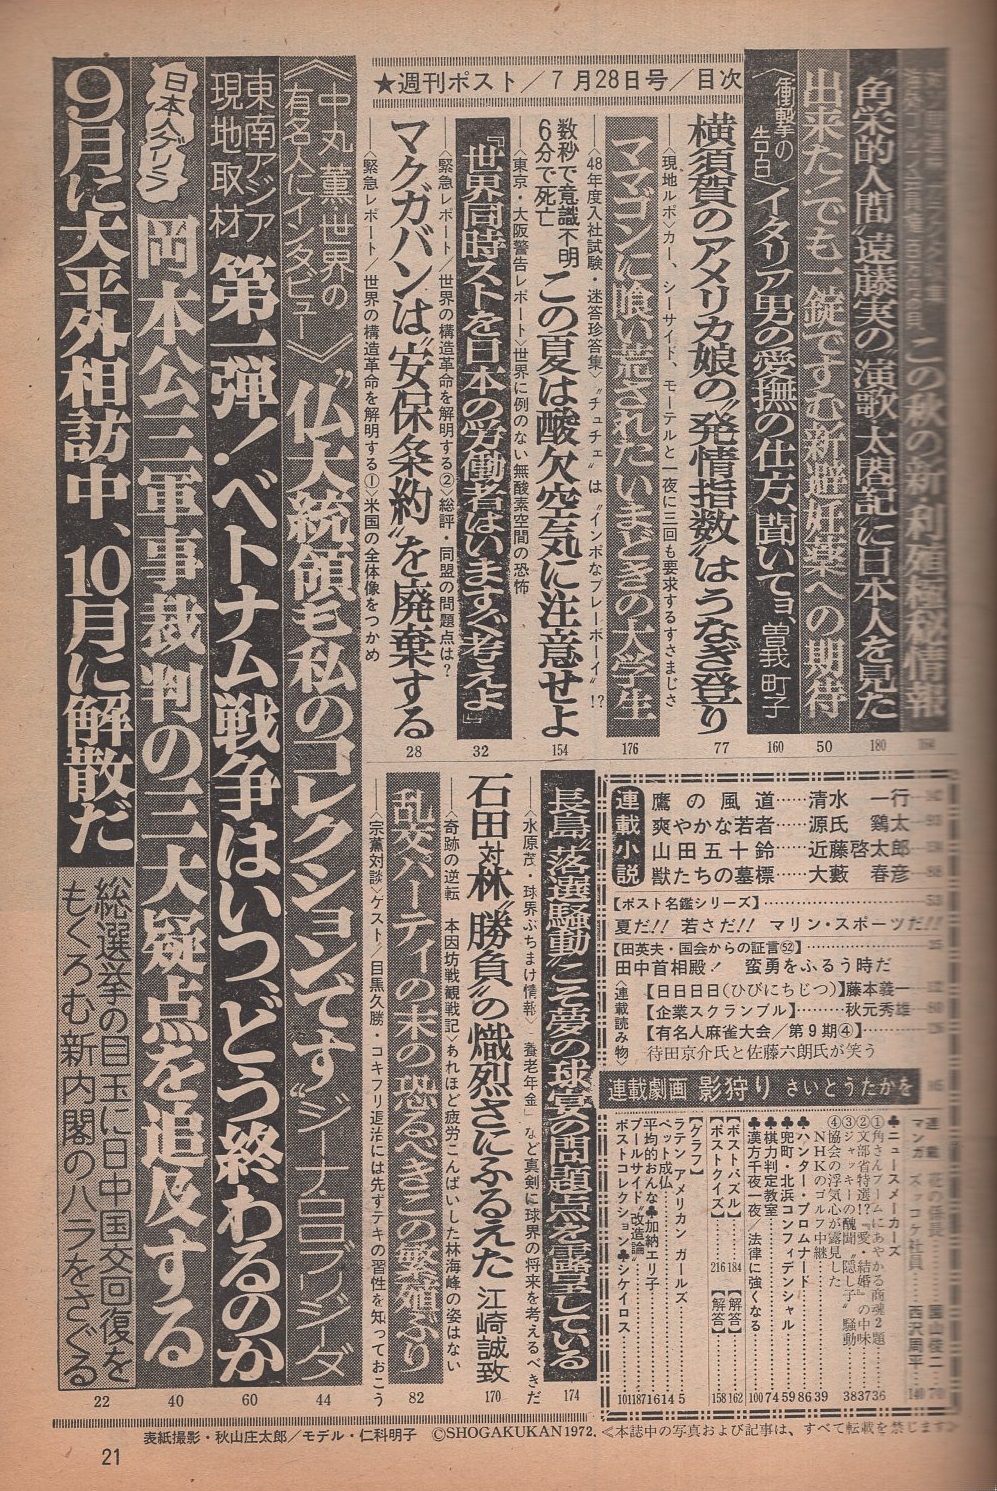 ★週刊ポスト／7月28日号／目次
この秋の新・利殖極秘情報
184
“角栄的人間”遠藤実の“演歌・太閤記”に日本人を見た
180
出来た！でも一錠ですむ新避妊薬への期待
50
〈衝撃の告白〉イタリア男の愛撫の仕方、聞いてョ、曽我町子
160
横須賀のアメリカ娘の“発情指数”はうなぎ登り
77
──〈現地ルポ〉カー、シーサイド、モーテルと一夜に三回も要求するすさまじさ
ママゴンに喰い荒されたいまどきの大学生
176
──〈48年度入社試験・迷答珍答集〉“チュチェ”は“インポなプレーボーイ”!?
数秒で意識不明
6分で死亡
この夏は酸欠空気に注意せよ
154
──〈東京・大阪警告レポート〉世界に例のない無酸素空間の恐怖
『世界同時ストを日本の労働者はいますぐ考えよ』
32
──〈緊急レポート／世界の構造革命を解明する②〉総評・同盟の問題点は？
マクガバンは“安保条約”を廃棄する
28
──〈緊急レポート／世界の構造革命を解明する①〉米国の全体像をつかめ
〈中丸薫 世界の有名人にインタビュー〉
“仏大統領も私のコレクションです”ジーナ・ロロブリジーダ
44
東南アジア現地取材
第一弾！ベトナム戦争はいつ、どう終わるのか
60
日本人ゲリラ
岡本公三軍事裁判の三大疑点を追及する
40
9月に大平外相訪中、10月に解散だ
総選挙の目玉に日中国交回復を
もくろむ新内閣のハラをさぐる
22
長島“落選騒動”こそ夢の球宴の問題点を露呈している
174
──〈水原茂・球界ぶちまけ情報〉“養老年金”など真剣に球界の将来を考えるべきだ
石田対林“勝負”の熾烈さにふるえた 江崎誠致
170
──〈奇跡の逆転 本因坊戦観戦記〉あれほど疲労こんぱいした林海峰の姿はない
乱交パーティの末の恐るべきこの繁殖ぶり
82
──〈宗薫対談〉ゲスト／目黒久勝・コキフリ退治には先ずテキの習性を知っておこう
連載小説
鷹の風道……清水一行…142
爽やかな若者……源氏鶏太…93
山田五十鈴……近藤啓太郎
獣たちの墓標……大藪春彦…88
【ポスト名鑑シリーズ】……53
夏だ!! 若さだ!! マリン・スポーツだ!!
【田英夫・国会からの証言52】……25
田中首相殿！ 蛮勇をふるう時だ
〈連載読み物〉
【日日日日（ひびにちじつ）】藤本義一
【企業スクランブル】……秋元秀雄…80
【有名人麻雀大会／第9期④】
待田京介氏と佐藤六朗氏が笑う
連載劇画 影狩り さいとうたかを
連載 花の係長……園山俊二 70
マンガ ズッコケ社員……西沢周平 140
♣ニュースメーカーズ
①角さんブームにあやかる商魂2題 36
②文部省特選!?『愛・結婚』の中味 37
③ジャッキーの醜聞“隠し子”騒動 38
④協会の浮気心が露見した
NHKのゴルフ中継 39
♣ハンター・プロムナード……86
♣兜町・北浜コンフィデンシャル……59
♣棋力判定教室……74
♣漢方千夜一夜／法律に強くなる 100
【ポストパズル】……184【解答】……162
【ポストクイズ】……216【解答】……158
【グラフ】
ラテン アメリカン ガールズ……5
ペット成仏……14
平均的おんな♣加納エリ子……16
プールサイド“改造論”……187
ポストコレクション♣シケイロス……101
表紙撮影・秋山庄太郎／モデル・仁科明子 ©SHOGAKUKAN1972. ≪本誌中の写真および記事は、すべて転載を禁じます≫
21